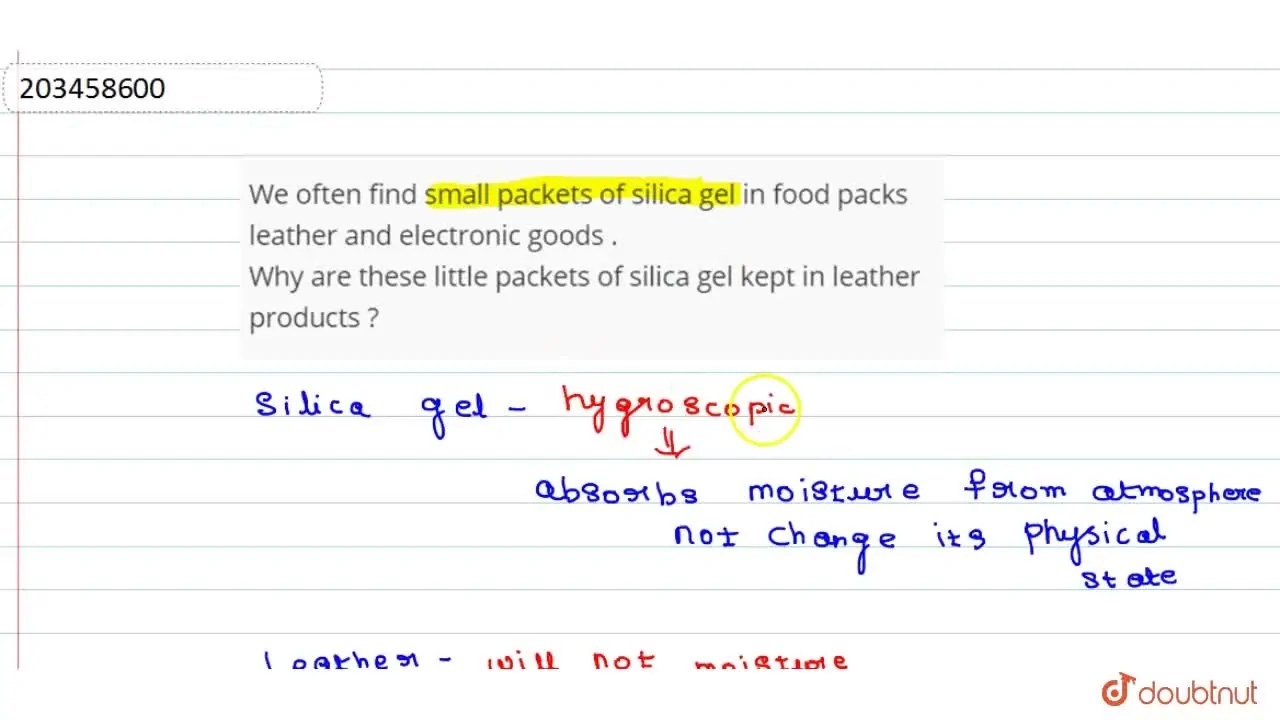 203458600
We often find small packets of silica gel in food packs
leather and electronic goods .
Why are these little packets of silica gel kept in leather
products ?
Silica gel - hygroscopic
absorbs moisture from atmosphere
not change its physical
state
Leather - will not moisture
doubtnut